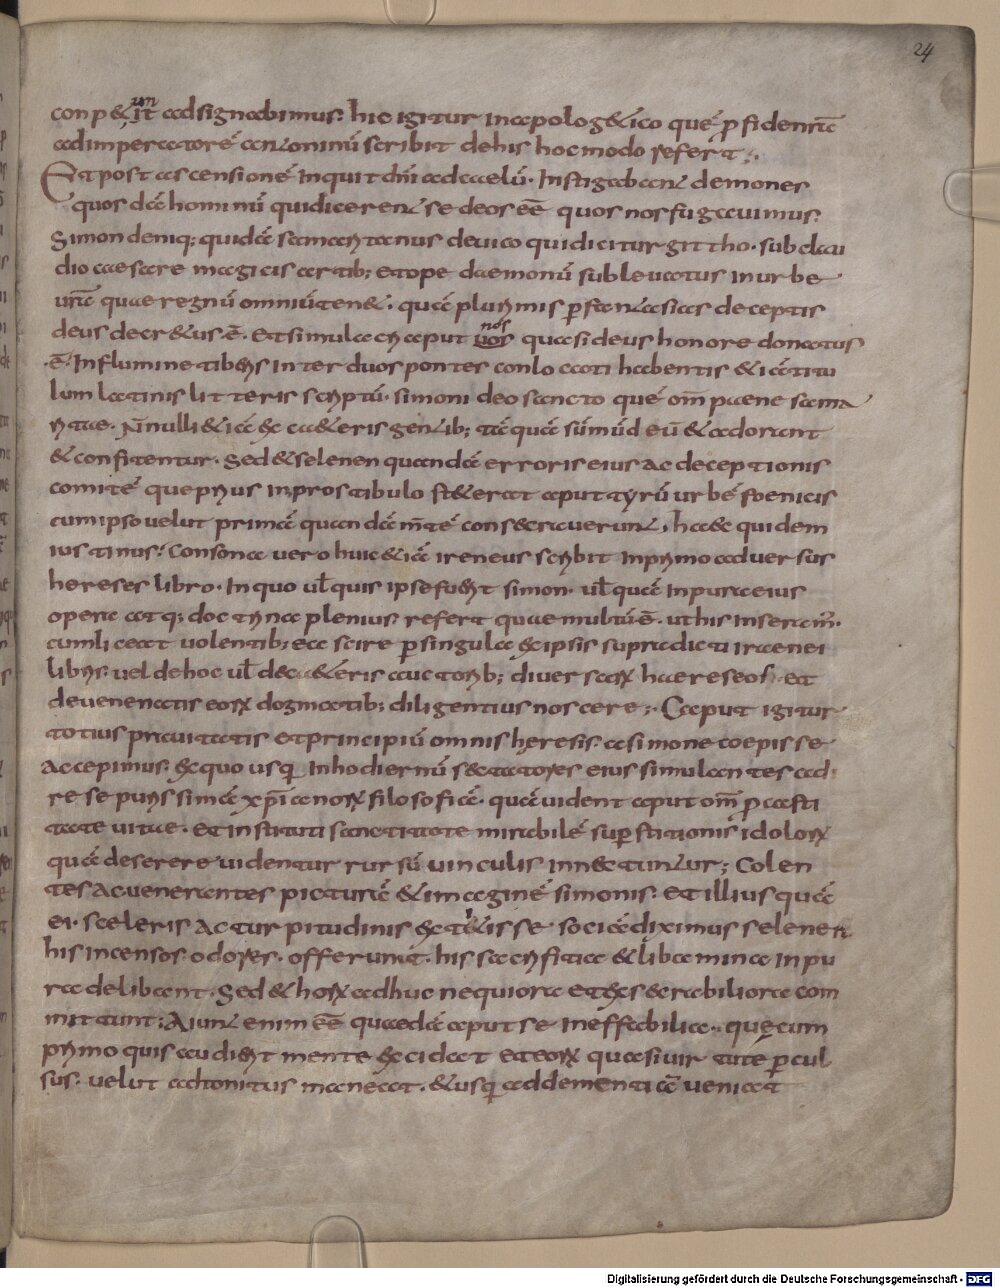 24
conp&it adsignabimus. hic igitur inapolog&ico quē p fidentiā
adimperatorē antoninū scribit dehis hocmodo refert;
Et post ascensionē inquit dn̄i adcaelū. Instigabant demones
quosdā hominū quidicerent se deos eē quos nos fugauimus.
Simon deniq; quidā samaritanus deuico quidicitur gittho. subclau
dio caesare magicis artib; etope daemonū subleuatus inurbe
urā quae regnū omniū ten&. quā plurimis p fantasias deceptis
deus decr&us ē. Etsimulacri aput uos nos quasi deus honore donatus
ē. Influmine tiberis inter duos pontes conlocati habentis &iā titu
lum latinis litteris scriptū. simoni deo sancto quē om̄ paene sama
ritae. N̄nulli &iā & ca&eris gentib; tā quā sūmūd eū & adorant
& confitentur. Sed & selenen quandā erroris eius ac deceptionis
comitē que prius inprostibulo st&erat aput tyrū urbē foenicis
cumipso uelut primā quandā m̄tē cons&crauerunt, haec quidem
iustinus. Consona uero huic &iā ireneus scribit inprimo aduersus
hereses libro. Inquo ul̄ quis ipse fuerit simon. ul̄ quā inpuraeius
opera atq; doctrina plenius refert quae multū ē. uthis inseram̄.
cumliceat uolentib; ea scire p singula & ipsis supradicti iraenei
libris. uel dehoc ul̄ deca&eris auctorib; diuersarꝝ haereseos. et
deuenenatis eorꝝ dogmatib; diligentius noscere;. Caput igitur
totius prauitatis etprincipiū omnis heresis. asimone coepisse
accepimus. & quo usq inhodiernū s&ctatores eius simulantes ad
re se purissimā xp̄ianorꝝ filosofiā. quā uident aput om̄ p casti
tate uitae. Etinstituti sanctitate mirabilē suꝑstitionis idolorꝝ
quā deserere uidentur rursū uinculis inn&ctuntur; Colen
tes acuenerantes picturā & imaginē simonis. Et illius quā
ei. sceleris ac turpitudinis & t&isse. sociā diximus selenen
his incensos odores. offerunt. his sacrificia & libamina inpu
ra delibant. Sed & horꝝ adhuc nequiora et&s&crabiliora com
mittunt; Aiunt enim eē quaedā aput se ineffabilia. quęcum
primo quis audierit mente &cidat et eorꝝ quasi uirtute p cul
sus. uelut adtonitus maneat. &usq addementiā ueniat
Digitalisierung gefördert durch die Deutsche Forschungsgemeinschaft - DFG